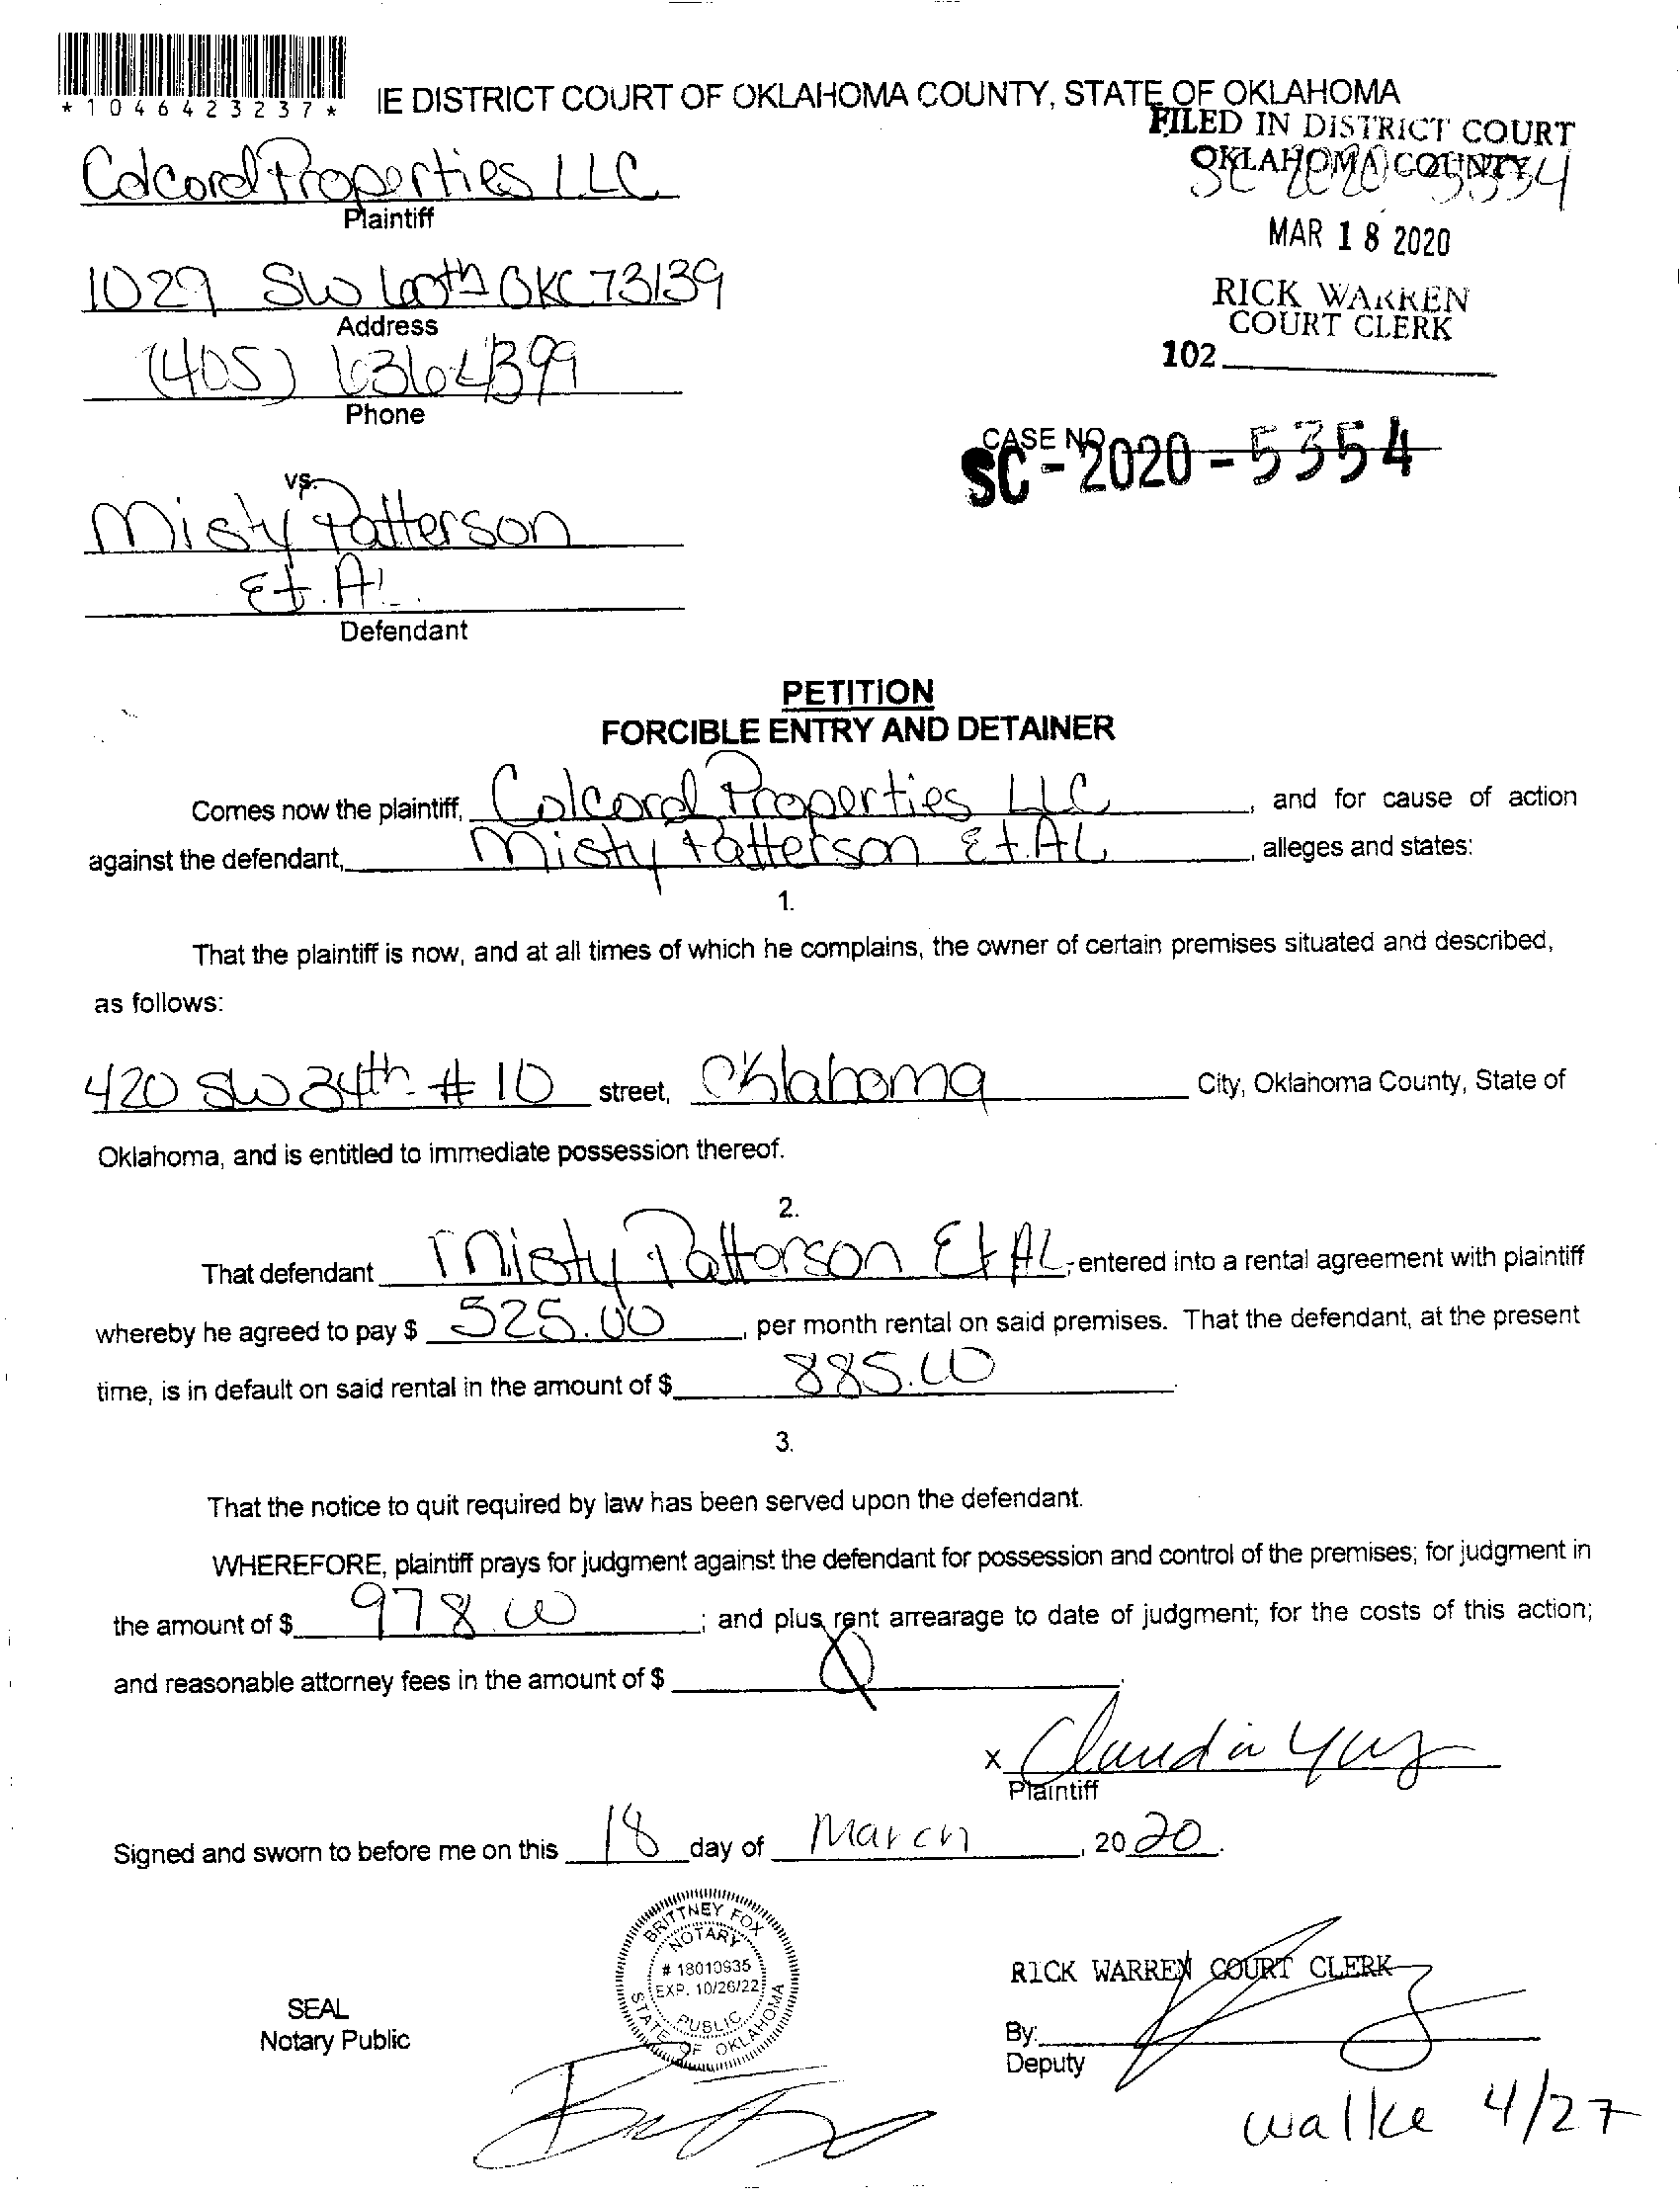 *1046423237*
IE DISTRICT COURT OF OKLAHOMA COUNTY, STATE OF OKLAHOMA
FILED IN DISTRICT COURT
OKLAHOMA COUNTY
SC 2020 5354
Colcord Properties LLC
Plaintiff
MAR 18 2020
1029 SW 60th OKC 73139
Address
RICK WARREN
COURT CLERK
(405) 636 4399
102
Phone
CASE NO.
SC-2020-5354
vs.
Misty Patterson
Et. Al.
Defendant
PETITION
FORCIBLE ENTRY AND DETAINER
Comes now the plaintiff, Colcord Properties LLC, and for cause of action
against the defendant, Misty Patterson Et. AL, alleges and states:
1.
That the plaintiff is now, and at all times of which he complains, the owner of certain premises situated and described,
as follows:
420 SW 34th # 10 street, Oklahoma City, Oklahoma County, State of
Oklahoma, and is entitled to immediate possession thereof.
2.
That defendant Misty Patterson Et AL, entered into a rental agreement with plaintiff
whereby he agreed to pay $ 525.00, per month rental on said premises. That the defendant, at the present
time, is in default on said rental in the amount of $ 885.00.
3.
That the notice to quit required by law has been served upon the defendant.
WHEREFORE, plaintiff prays for judgment against the defendant for possession and control of the premises; for judgment in
the amount of $ 978.00; and plus rent arrearage to date of judgment; for the costs of this action;
and reasonable attorney fees in the amount of $ 0.
x Claudia
Plaintiff
Signed and sworn to before me on this 18 day of March, 2020.
BRITTNEY FOX
NOTARY
# 18010935
EXP. 10/26/22
PUBLIC
STATE OF OKLAHOMA
SEAL
Notary Public
RICK WARREN COURT CLERK
By:
Deputy
walke 4/27